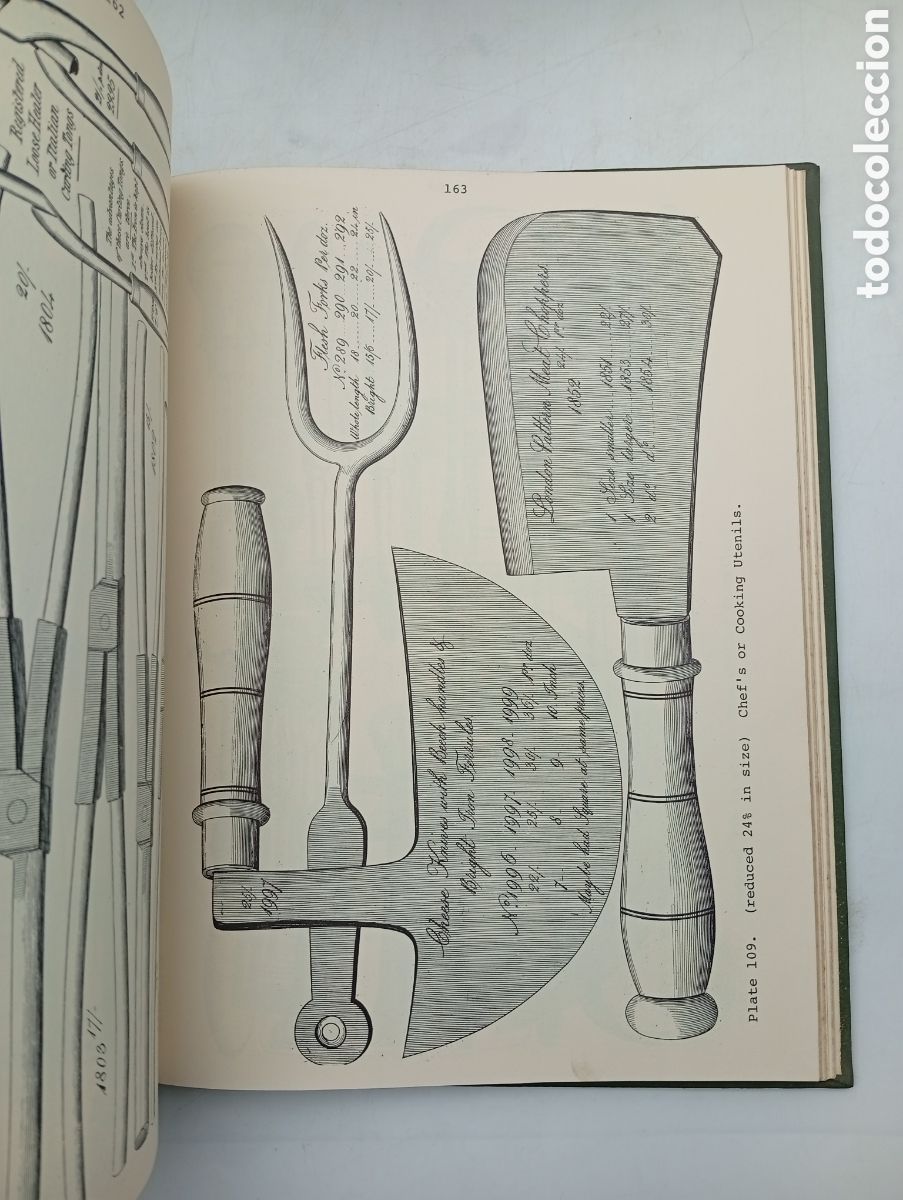 162
Registered
Loose Heater
or Italian
Curling Tongs
2005
The advantages
of these Curling Tongs
are these
20/-
1804
1803 17/-
163
Flesh Forks Per doz.
No. 289 ..... 290 291 ... 292
Whole length 18 ..... 20 ..... 22 ..... 24 in
Bright 15/6 ..... 17/- ..... 20/- ..... 25/-
London Pattern Meat Choppers
1852 24/- pr doz
1 Size smaller ..... 1851 ..... 22/-
1 Size larger ..... 1853 ..... 27/-
2 do do ..... 1854 ..... 30/-
23/-
1997
Cheese Knives with Beech handles &
Bright Iron Ferrules
No. 1996 . 1997 1998 . 1999
22/- 25/- 30/- 36/- pr doz
7 ... 8 ... 9 ... 10 Inch
May be had Square at same prices.
Plate 109. (reduced 24% in size) Chef's or Cooking Utenils.
todocoleccion